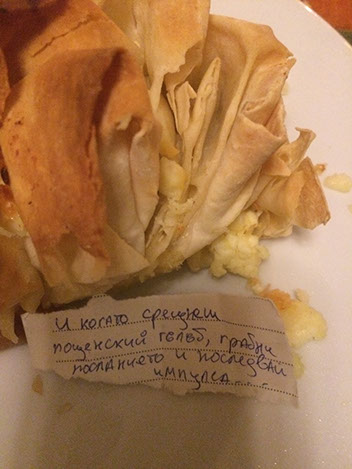 И когато срещнеш
пощенския гълъб, грабни
посланието и последвай
импулса...